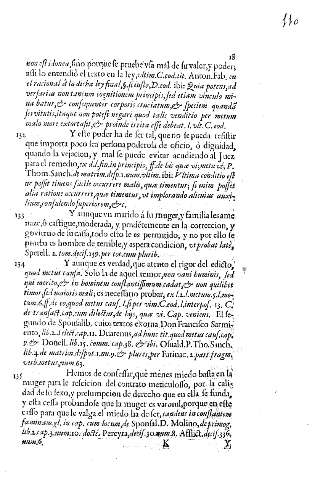 110
18
non est idonea, sino porque se prueue vsa mal de su valer, y poder;
assi lo entendió el texto en la ley, vltim. C. eod. tit. Anton. Fab. en
el racional à la dicha ley
ibi: Quia potens, ad
versarium non tantum cognitionem principis, sed etiam vinculo mi
nabatur, & consequenter corporis cruciatum, & speciem quandā
servitutis, itaque non potest negari quod talis venditio per metum
malo more extortus sit, & proinde irrita esse debeat. l. vlt. C. eod.
132. Y este poder ha de ser tal, que no se pueda resistir
que importa poco lea persona poderosa de oficio, ó dignidad,
quando la vejacion, y mal se puede evitar acudiendo al Juez
para el remedio,
P.
Thom. Sanch. de matrim. disp. 1. num. vltim. ibi: Vltima conditio est
ut possit timens facile occurrere malo, quia timentur; si enim posset
alia ratione occurrere, quæ timentur, vt implorando alicuius auxi-
lium, consulendo superiorem, &c.
133 Y aunque vn marido á su muger, y familia lesame
naze, ó castigue, moderada, y prudentemente en la correccion, y
govierno de su casa, todo esto le es permitido, y no por esso se
prueba es hombre de terrible, y aspera condicion, vt probat latè,
Sperell. 2. tom. decis. 150. per totam plurib.
134 Y aunque es verdad, que atento el rigor del edicto,
quod metus causa. Solo ha de aquel temor, non vani hominis, sed
qui merito, & in hominem constantissimum cadat, & non quilibet
timor, sed maioris mali; es necessario probar, ex l. 2. l. metum. 5. l. me-
tum. 6. ff. de eo quod metus caus. l. si per vim. C. eod. l. interpos. 13. C.
de transact. cap. cum dilectus, de hijs, quæ vi. Cap. veniens. El se-
gundo de Sponsalib. cuios textos exorna Don Francisco Sarmi-
ento, lib. 2. select. cap. 11. Duarenus, ad hunc tit. quod metus caus. cap.
7. & Donell. lib. 15. comm. cap. 38. & ibi. Osuald. P. Tho. Sanch.
lib. 4. de matrim. disput. 1. nu. 9. & plures, per Farinac. 2. part. fragm.
verb. metus, num. 63.
135 Hemos de confessar, que menos miedo basta en la
muger para le rescision del contrato meticulosso, por la cali-
dad de su sexo, y presumpcion de derecho que en ella se funda,
y esta cessa probandose que la muger es varonil, porque en este
casso para que le valga el miedo ha de ser, cuadens in constantem
fœminam, gl. in cap. cum locum, de Sponsal. D. Molino, de primog.
lib. 2. cap. 3. num. 10. docte, Pereyra, decis. 30. num. 8. Afflict. decis. 336.
num. 6. K Y